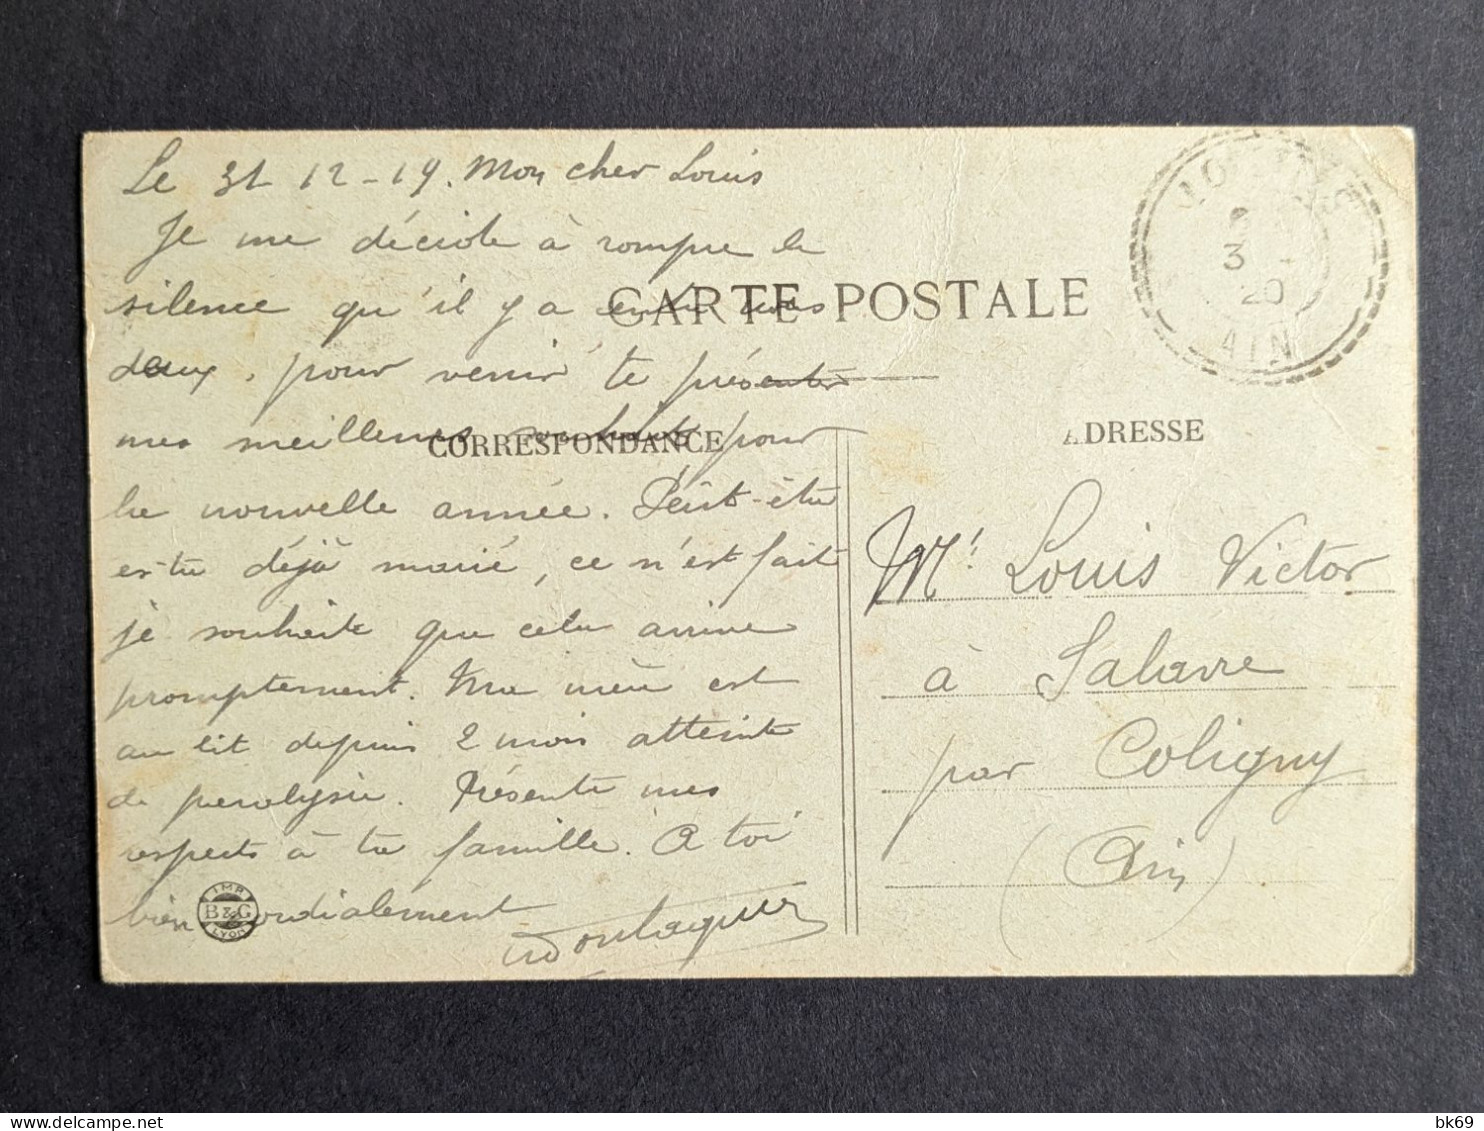 Le 31-12-19. Mon cher Louis
Je me décide à rompre le
silence qu'il y a entre nous
deux, pour venir te présenter
mes meilleurs souhaits pour
la nouvelle année. Peut-être
es-tu déjà marié, ce n'est fait
je souhaite que cela arrive
promptement. Ma mère est
au lit depuis 2 mois atteinte
de paralysie. Présente mes
respects à ta famille. A toi
bien cordialement
CARTE POSTALE
CORRESPONDANCE
ADRESSE
Mr. Louis Victor
à Salavre
par Coligny
(Ain)
3
20
AIN
IMP.
B&G
LYON
bk69